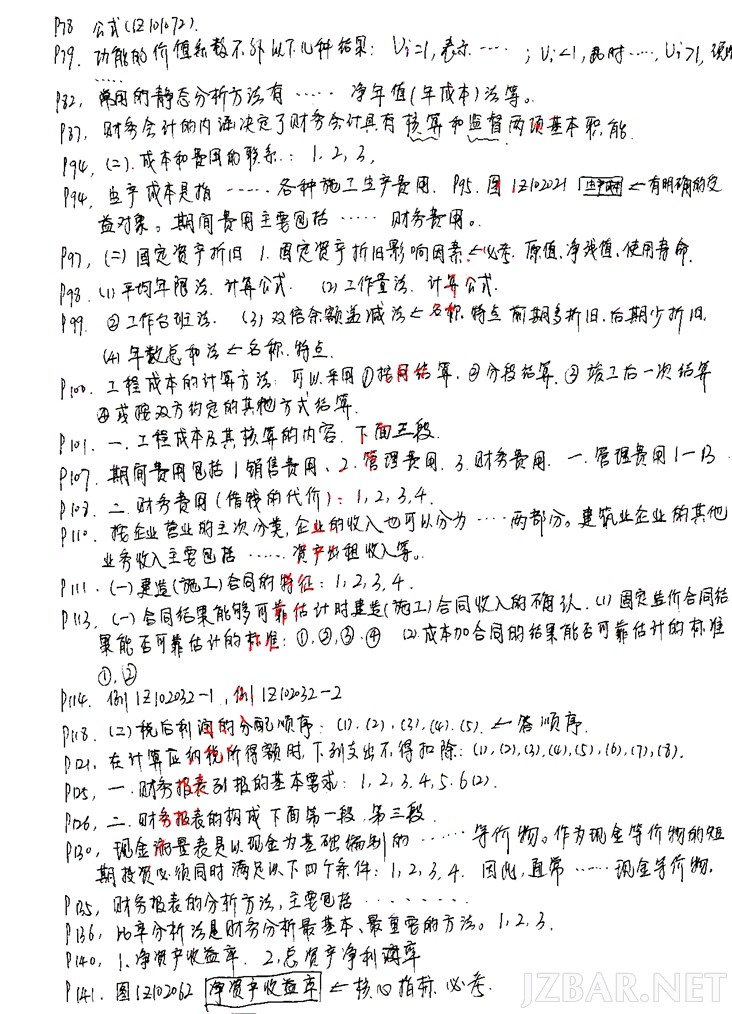 P78 公式(1Z101072).
P79. 功能的价值系数不外以下几种结果: Vi=1,表示……; Vi<1,此时……, Vi>1,须
……
P82, 常用的静态分析方法有……净年值(年成本)法等。
P87, 财务会计的内涵决定了财务会计具有核算和监督两项基本职能.
P94, (二).成本和费用的联系: 1,2,3,
P94, 生产成本是指……各种施工生产费用. P95. 图1Z102021 ←有明确的受
益对象。期间费用主要包括……财务费用。
P97, (二)固定资产折旧 1.固定资产折旧影响因素←必考.原值,净残值,使用寿命.
P98. (1)平均年限法.计算公式. (2)工作量法.计算公式.
P99. ②工作台班法. (3)双倍余额递减法←名称.特点前期多折旧,后期少折旧.
(4)年数总和法←名称.特点.
P100. 工程成本的计算方法:可以采用①按月结算.②分段结算.③竣工后一次结算
④或按双方约定的其他方式结算.
P101. 一.工程成本及其核算的内容.下面三段.
P107. 期间费用包括1销售费用、2.管理费用.3.财务费用. 一.管理费用1—13
P108. 二.财务费用(借钱的代价): 1,2,3,4.
P110. 按企业营业的主次分类,企业的收入也可以分为……两部分。建筑业企业的其他
业务收入主要包括……资产出租收入等。
P111. (一)建造(施工)合同的特征: 1,2,3,4.
P113, (一)合同结果能够可靠估计时建造(施工)合同收入的确认.(1)固定造价合同结
果能否可靠估计的标准:①,②,③.④ (2).成本加合同的结果能否可靠估计的标准
①,②
P114. 例1Z102032-1,例1Z102032-2
P118. (二)税后利润的分配顺序: (1).(2).(3).(4).(5).←答顺序.
P121. 在计算应纳税所得额时,下列支出不得扣除: (1),(2),(3),(4),(5),(6),(7),(8).
P125, 一.财务报表列报的基本要求: 1,2,3,4,5,6(2).
P126, 二.财务报表的构成下面第一段.第三段.
P130, 现金流量表是以现金为基础编制的……等价物。作为现金等价物的短
期投资必须同时满足以下四个条件: 1,2,3,4. 因此,通常……现金等价物.
P135, 财务报表的分析方法,主要包括………
P136, 比率分析法是财务分析最基本、最重要的方法。1,2,3.
P140, 1、净资产收益率. 2,总资产净利率
P141. 图1Z102062 净资产收益率←核心指标.必考.
JZBAR.NET